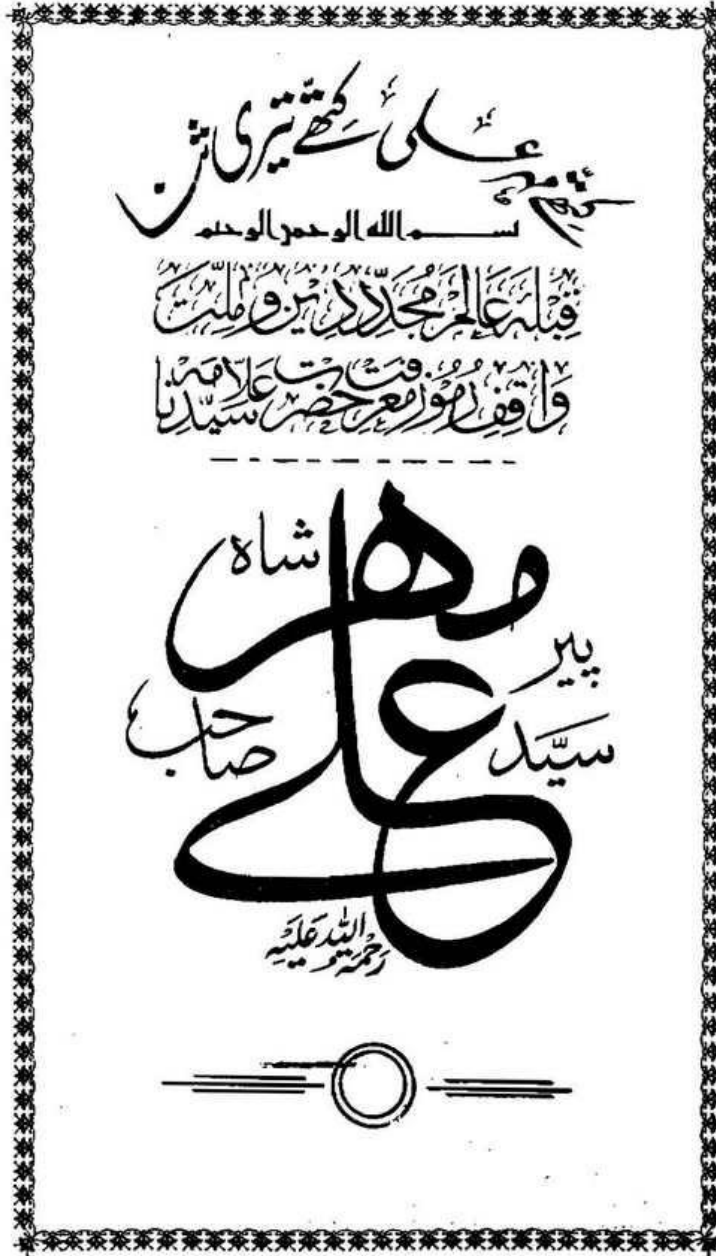 کتھے مہر علی کتھے تیری ثنا
بسم الله الرحمن الرحيم
قبلہ عالم مجدد دین و ملت
واقف رموز معرفت حضرت علامہ سیدنا
پیر سید مہر علی شاہ صاحب
رحمۃ اللہ علیہ